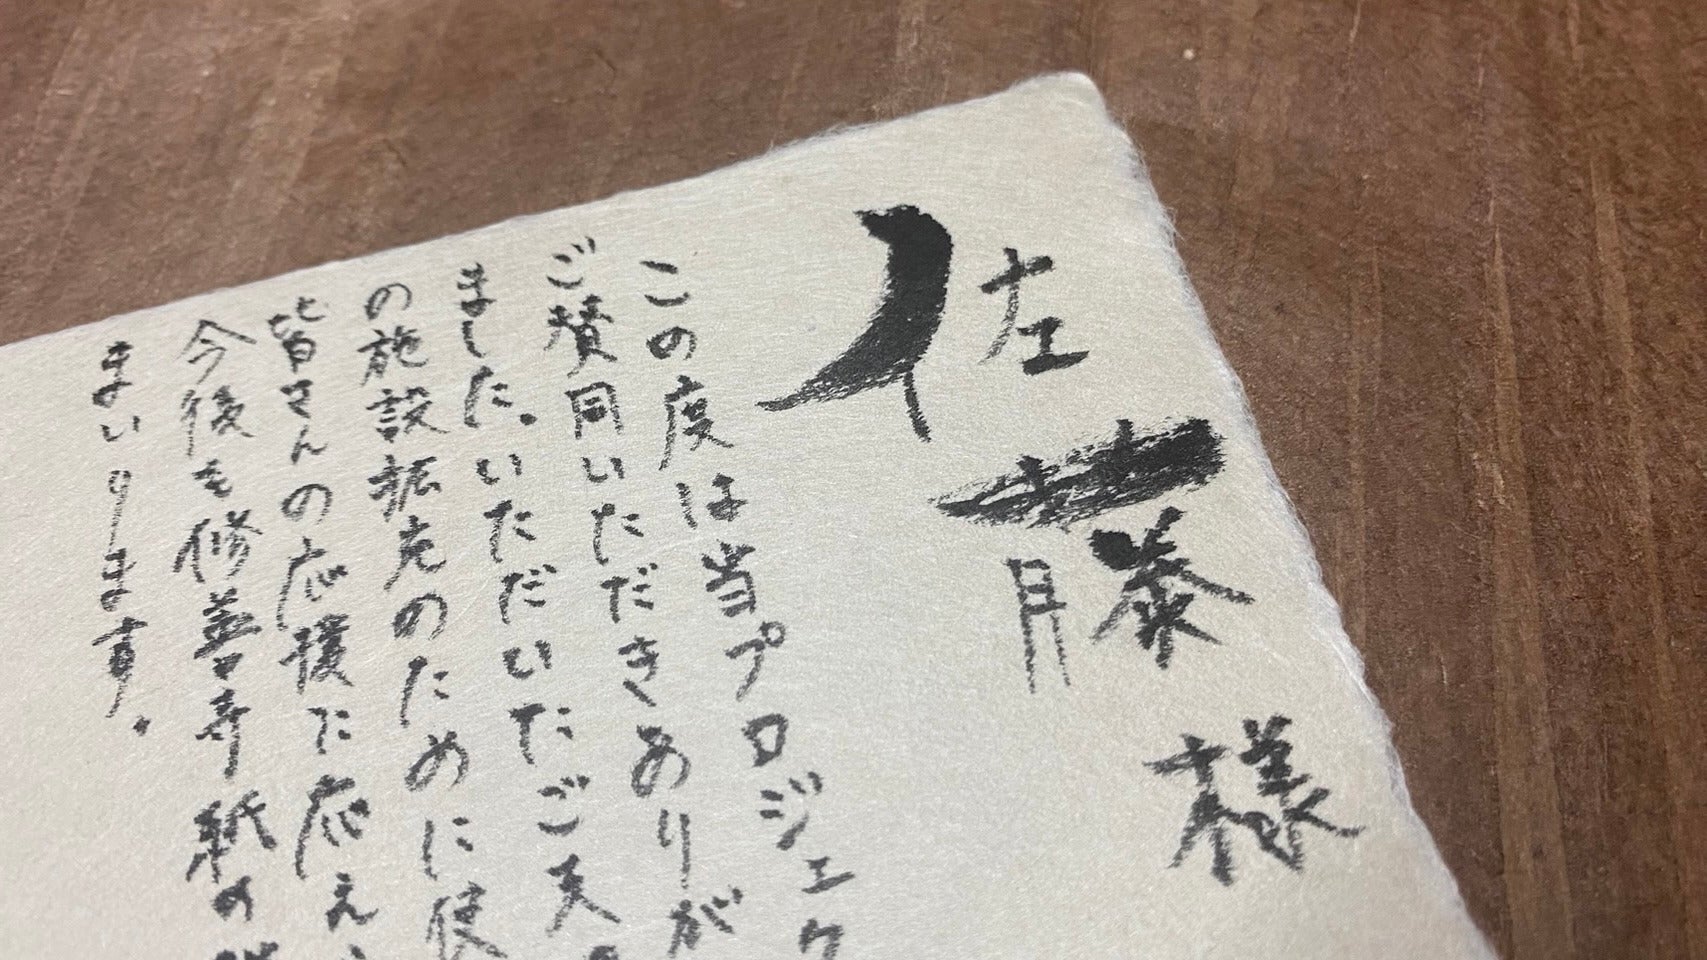 佐藤様
この度は当プロジェク
ご賛同いただきありが
ました。いただいたご支
の施設拡充のために使
皆さんの応援に応え
今後も修善寺紙の
まいります。